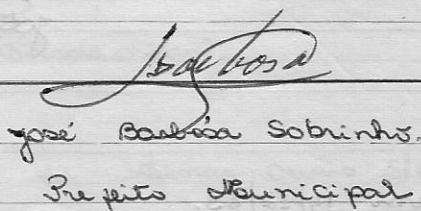 Jbarbosa
José Barbosa Sobrinho.
Prefeito Municipal